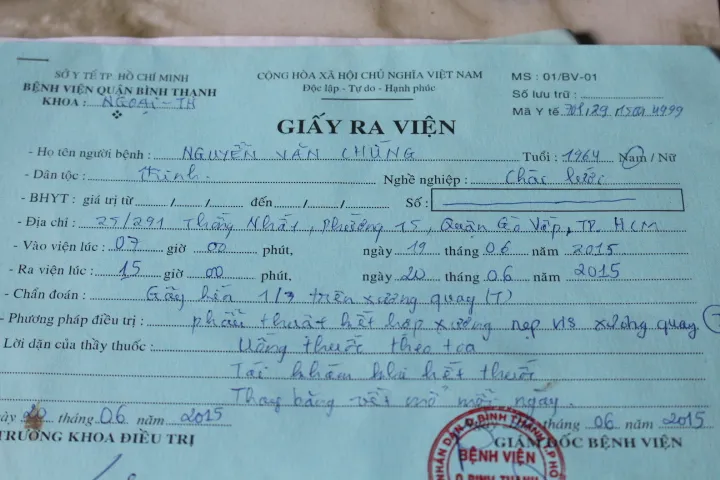 SỞ Y TẾ TP. HỒ CHÍ MINH
BỆNH VIỆN QUẬN BÌNH THẠNH
KHOA : NGOẠI - TH
CỘNG HÒA XÃ HỘI CHỦ NGHĨA VIỆT NAM
Độc lập - Tự do - Hạnh phúc
MS : 01/BV-01
Số lưu trữ :
Mã Y tế
GIẤY RA VIỆN
- Họ tên người bệnh : NGUYỄN VĂN CHŨNG Tuổi : 1964 Nam / Nữ
- Dân tộc : Kinh. Nghề nghiệp : Chài lưới
- BHYT : giá trị từ / / đến / / Số :
- Địa chỉ : 25/291 Thống Nhất, Phường 15, Quận Gò Vấp, TP. HCM
- Vào viện lúc : 07 giờ 00 phút, ngày 19 tháng 06 năm 2015
- Ra viện lúc : 15 giờ 00 phút, ngày 20 tháng 06 năm 2015
- Chẩn đoán : Gãy kín 1/3 trên xương quay (T)
- Phương pháp điều trị : phẫu thuật kết hợp xương nẹp vis xương quay
Lời dặn của thầy thuốc : Uống thuốc theo toa
Tái khám khi hết thuốc
Thay băng vết mổ mỗi ngày.
ngày 20 tháng 06 năm 2015
tháng 06 năm 2015
TRƯỞNG KHOA ĐIỀU TRỊ
GIÁM ĐỐC BỆNH VIỆN
NHÂN DÂN Q.BÌNH THẠNH T.P HỒ
BỆNH VIỆN
Q.BÌNH THẠNH